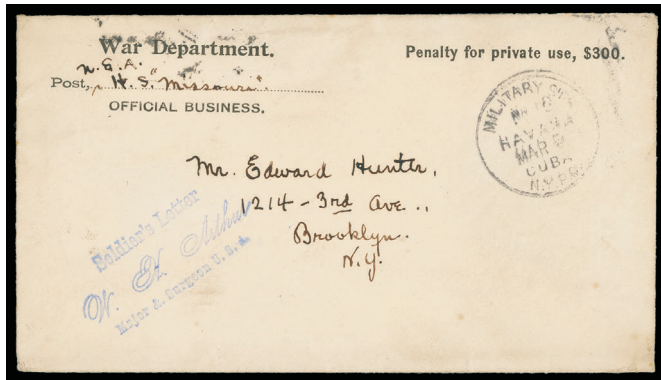 War Department.
Penalty for private use, $300.
U.S.A.
Post, H. S. "Missouri".
OFFICIAL BUSINESS.
MILITARY
HAVANA
MAR 9
CUBA
N.Y.P.O.
Mr. Edward Hunter,
1214 - 3rd Ave.,
Brooklyn.
N.Y.
Soldier's Letter
W. H. Arthur
Major & Surgeon U. S. A.